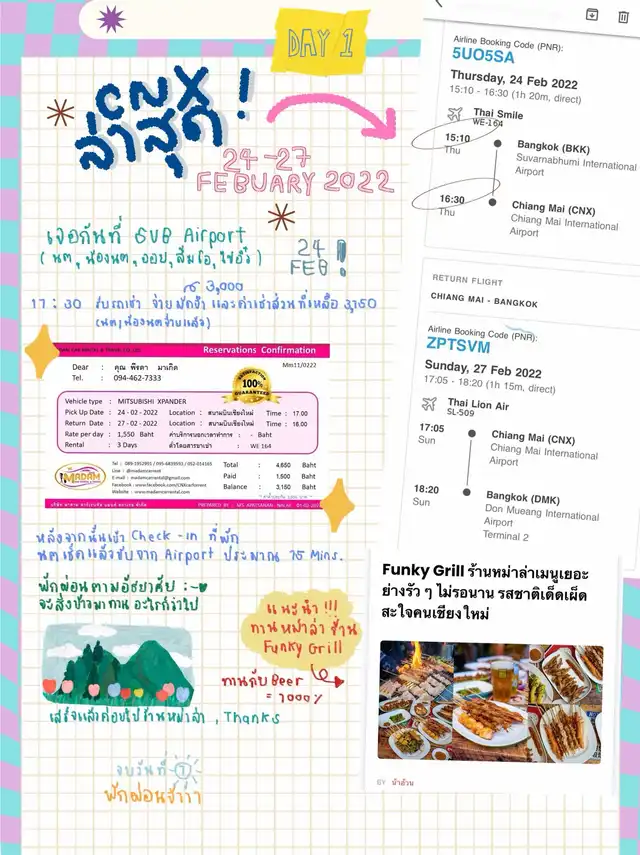 DAY 1
CNX
ล่าสุด !
24-27
FEBUARY 2022
เจอกันที่ SVB Airport
24
FEB !
3,000
(นต, น้องนตจ่ายแล้ว)
Reservations Confirmation
Mm11/0222
Dear : คุณ พีรดา มาเกิด
Tel. : 094-462-7333
SATISFACTION
100%
GUARANTEED
Vehicle type : MITSUBISHI XPANDER
Pick Up Date : 24 - 02 - 2022 Location : สนามบินเชียงใหม่ Time : 17.00
Return Date : 27 - 02 - 2022 Location : สนามบินเชียงใหม่ Time : 18.00
Rate per day : 1,550 Baht ค่าบริการนอกเวลาทำการ : - Baht
Rental : 3 Days ตั๋วโดยสารขาเข้า : WE 164
MADAM
Total : 4,650 Baht
Paid : 1,500 Baht
Balance : 3,150 Baht
หลังจากนั้นเข้า Check-in ที่พัก
นตเช็คแล้วขับจาก Airport ประมาณ 15 Mins.
พักผ่อนตามอัธยาศัย :-
จะสั่งข้าวมาทาน อะไรก็ว่าไป
แนะนำ !!!
ทานหม่าล่า ร้าน
Funky Grill
ทานกับ Beer
= 1000%
เสร็จแล้วค่อยไปร้านหม่าล่า , Thanks
จบวันที่ 1
พักผ่อนจ้าาา
Airline Booking Code (PNR):
5UO5SA
Thursday, 24 Feb 2022
15:10 - 16:30 (1h 20m, direct)
Thai Smile
WE-164
15:10
Thu
Bangkok (BKK)
Suvarnabhumi International
Airport
16:30
Thu
Chiang Mai (CNX)
Chiang Mai International
Airport
RETURN FLIGHT
CHIANG MAI - BANGKOK
Airline Booking Code (PNR):
ZPTSVM
Sunday, 27 Feb 2022
17:05 - 18:20 (1h 15m, direct)
Thai Lion Air
SL-509
17:05
Sun
Chiang Mai (CNX)
Chiang Mai International
Airport
18:20
Sun
Bangkok (DMK)
Don Mueang International
Airport
Terminal 2
Funky Grill ร้านหม่าล่าเมนูเยอะ
ย่างรัว ๆ ไม่รอนาน รสชาติเด็ดเผ็ด
สะใจคนเชียงใหม่
BY น้าอ้วน